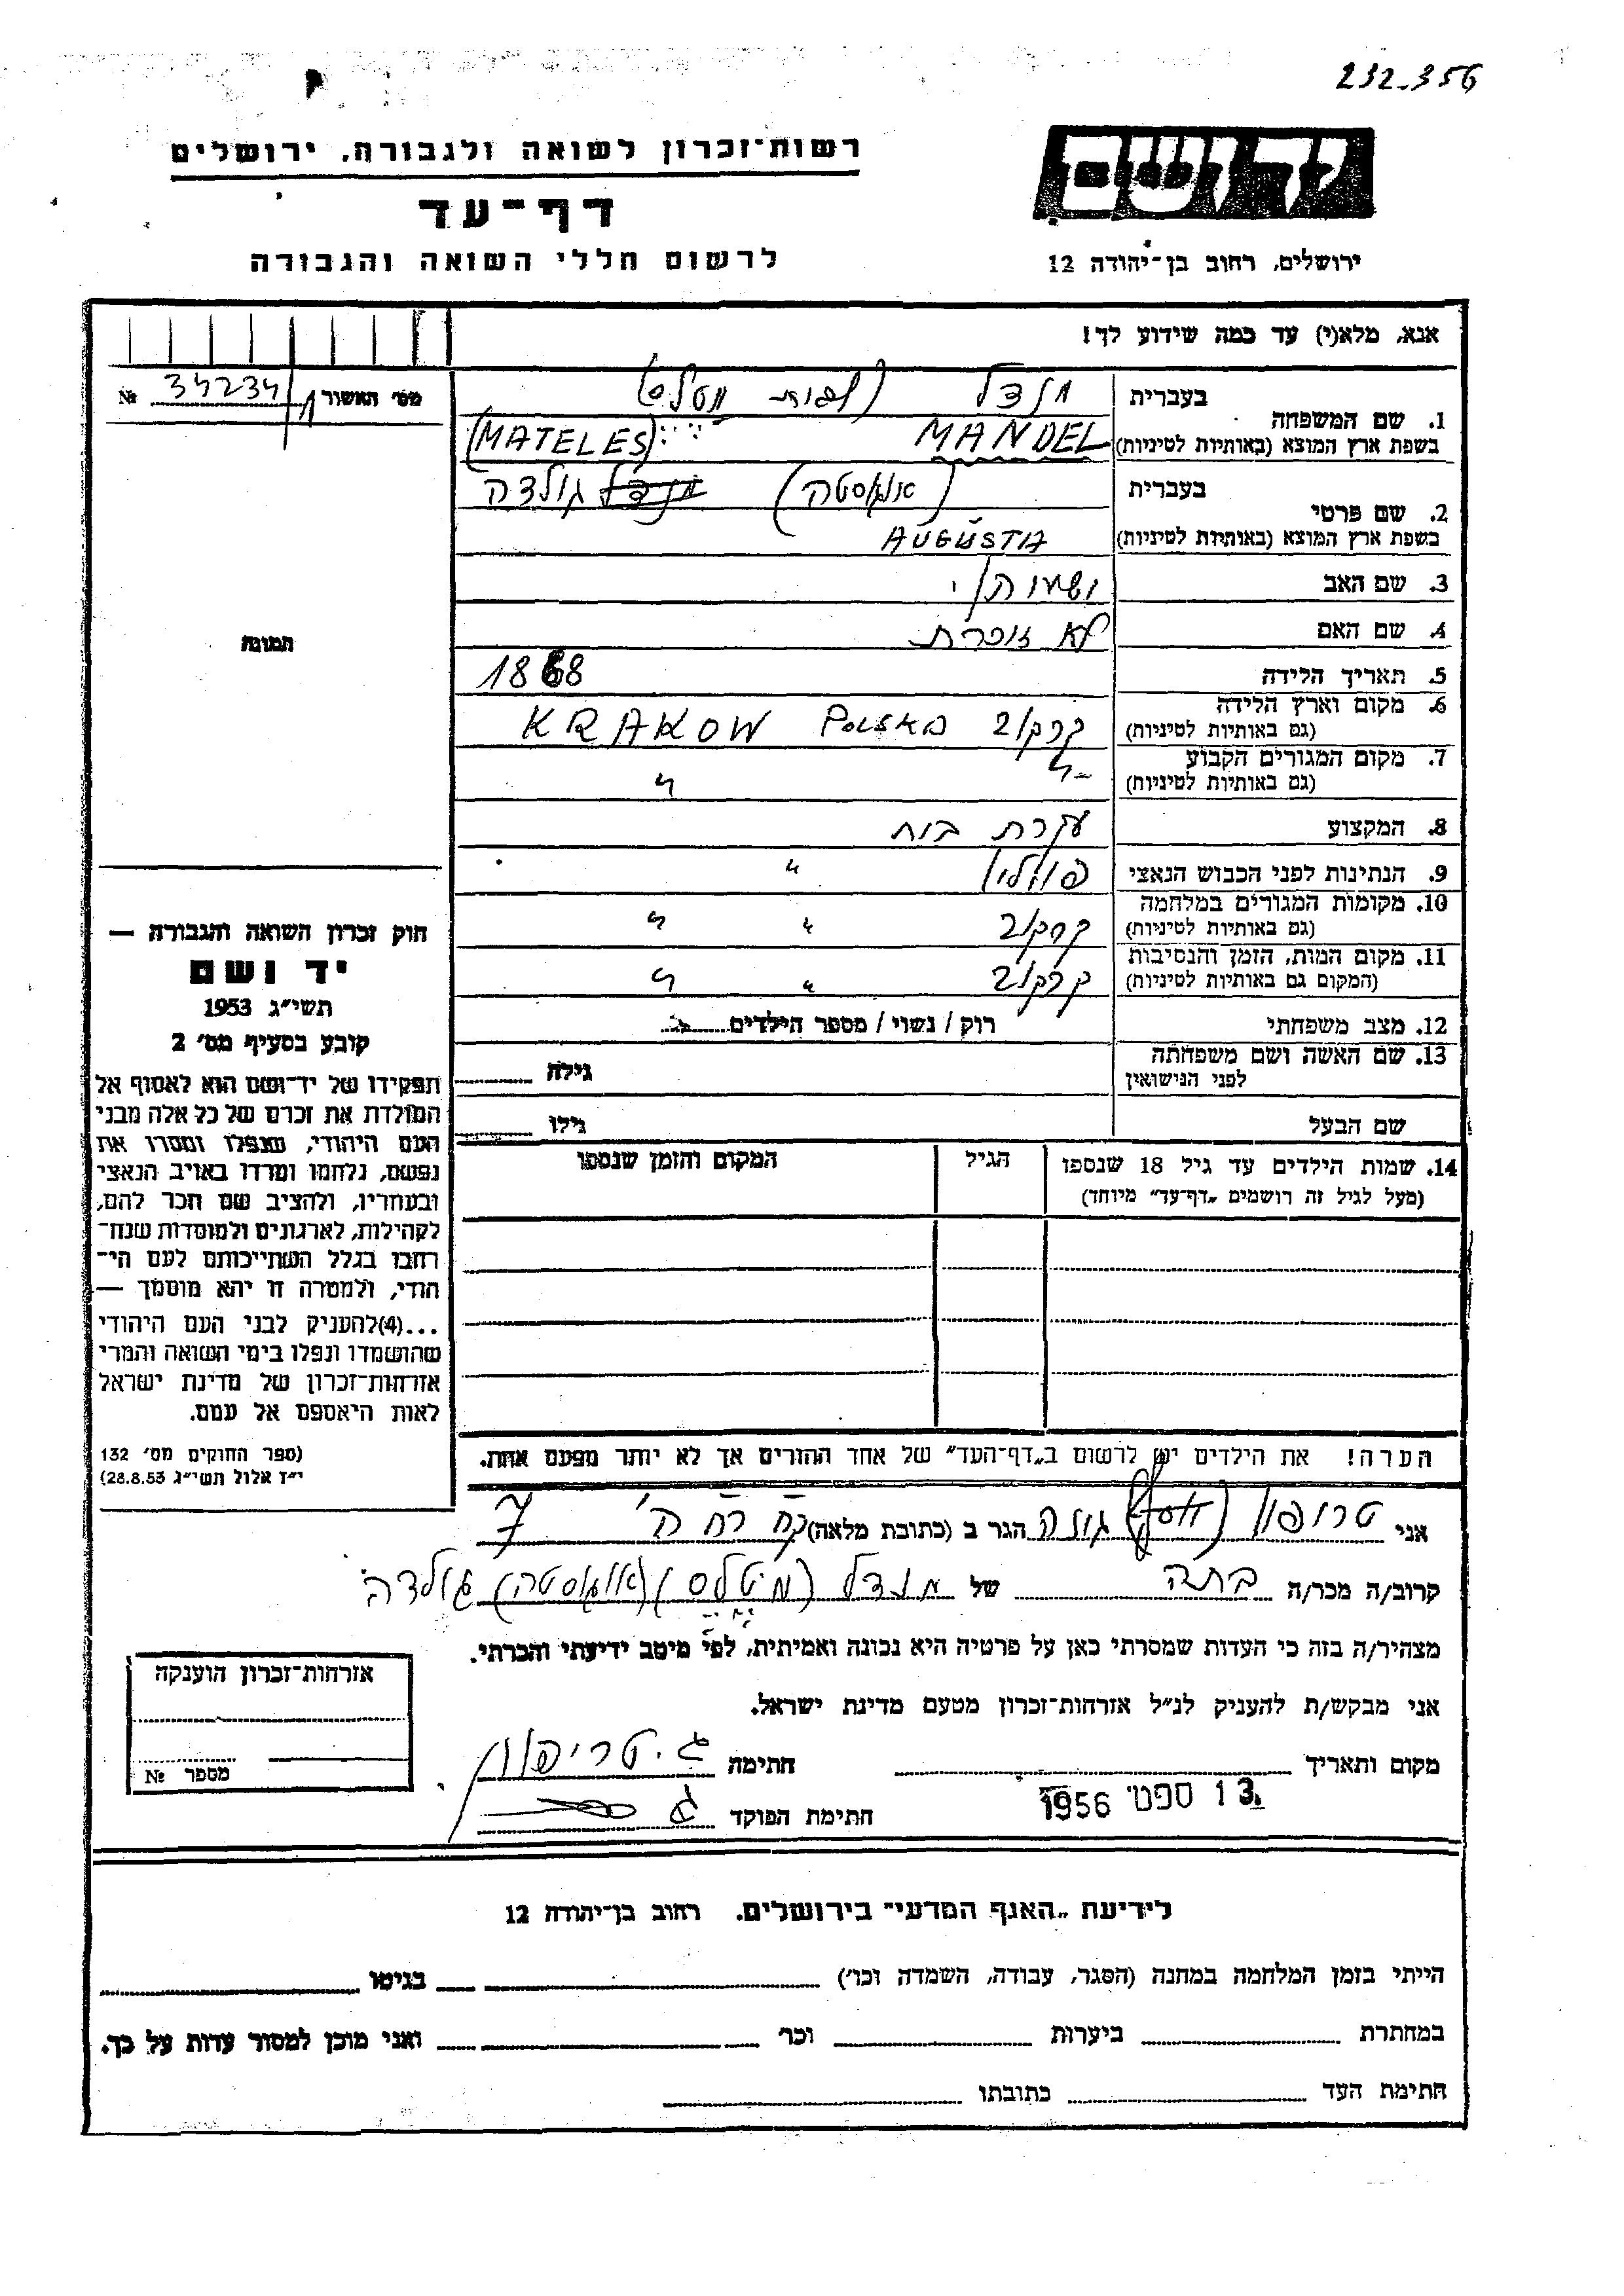 232.356
רשות־זכרון לשואה ולגבורה, ירושלים
דף־עד
לרשום חללי השואה והגבורה
יד ושם
ירושלים, רחוב בן־יהודה 12
אנא, מלא(י) עד כמה שידוע לך!
מס׳ האשור 34234 №
1. שם המשפחה
בעברית מנדל (לבית מטלס)
בשפת ארץ המוצא (באותיות לטיניות) MANDEL (MATELES)
2. שם פרטי
בעברית (אוגוסטה) גולדה
בשפת ארץ המוצא (באותיות לטיניות) AUGUSTA
3. שם האב
4. שם האם לא זוכרת
5. תאריך הלידה 1868
6. מקום וארץ הלידה קרקוב POLSKA KRAKOW
(גם באותיות לטיניות)
7. מקום המגורים הקבוע -״- ״
(גם באותיות לטיניות)
8. המקצוע עקרת בית
9. הנתינות לפני הכבוש הנאצי פולין ״
10. מקומות המגורים במלחמה קרקוב ״ ״
(גם באותיות לטיניות)
11. מקום המות, הזמן והנסיבות קרקוב ״ ״
(המקום גם באותיות לטיניות)
12. מצב משפחתי רוק / נשוי / מספר הילדים
13. שם האשה ושם משפחתה
לפני הנישואין
גילה
שם הבעל גילו
14. שמות הילדים עד גיל 18 שנספו
(מעל לגיל זה רושמים „דף־עד״ מיוחד)
הגיל
המקום והזמן שנספו
הערה! את הילדים יש לרשום ב„דף־העד״ של אחד ההורים אך לא יותר מפעם אחת.
תמונה
חוק זכרון השואה והגבורה —
יד ושם
תשי״ג 1953
קובע בסעיף מס׳ 2
תפקידו של יד־ושם הוא לאסוף אל
המולדת את זכרם של כל אלה מבני
העם היהודי, שנפלו ומסרו את
נפשם, נלחמו ומרדו באויב הנאצי
ובעוזריו, ולהציב שם וזכר להם,
לקהילות, לארגונים ולמוסדות שנח־
רבו בגלל השתייכותם לעם הי־
הודי, ולמטרה זו יהא מוסמך —
...(4)להעניק לבני העם היהודי
שהושמדו ונפלו בימי השואה והמרי
אזרחות־זכרון של מדינת ישראל
לאות היאספם אל עמם.
(ספר החוקים מס׳ 132
י״ז אלול תשי״ג 28.8.53)
אני טרופון גולה הגר ב (כתובת מלאה) 7
קרוב/ה מכר/ה בתה של מנדל (מיטלס) (אוגוסטה) גולדה
מצהיר/ה בזה כי העדות שמסרתי כאן על פרטיה היא נכונה ואמיתית, לפי מיטב ידיעתי והכרתי.
אני מבקש/ת להעניק לנ״ל אזרחות־זכרון מטעם מדינת ישראל.
מקום ותאריך 13 ספט׳ 1956
חתימה ג. טריפון
חתימת הפוקד
אזרחות־זכרון הוענקה
מספר №
לידיעת „האגף המדעי״ בירושלים. רחוב בן־יהודה 12
הייתי בזמן המלחמה במחנה (הסגר, עבודה, השמדה וכו׳) בגיטו
במחתרת ביערות וכו׳ ואני מוכן למסור עדות על כך.
חתימת העד כתובתו